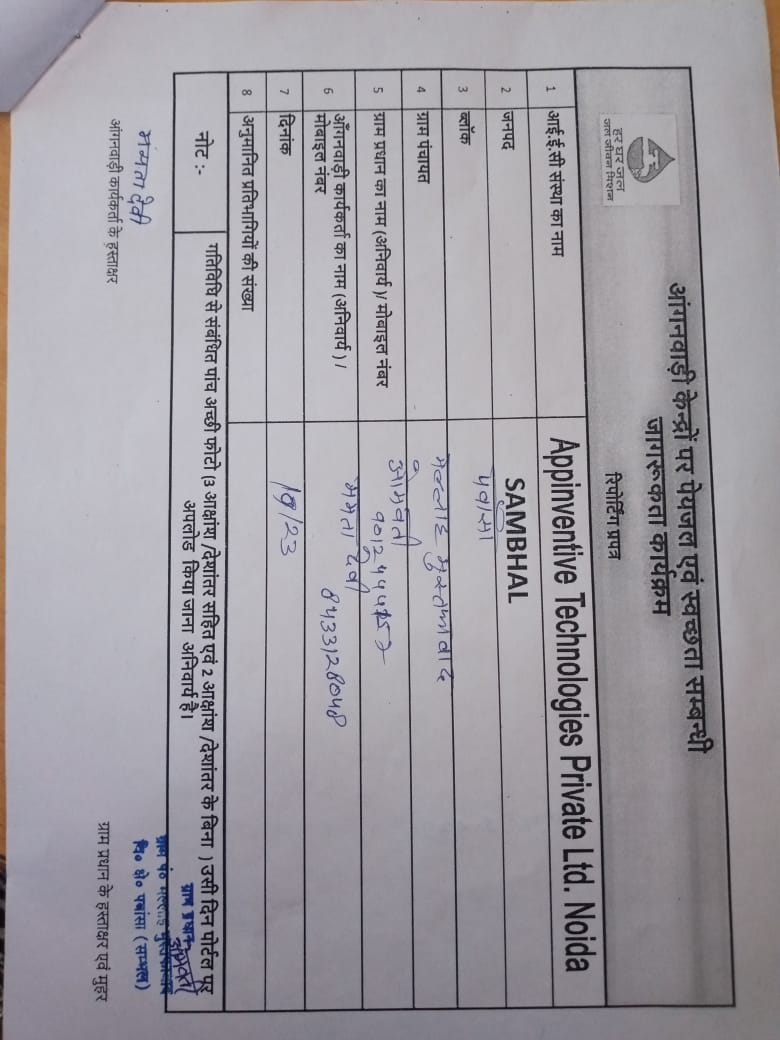 हर घर जल
जल जीवन मिशन
आंगनवाड़ी केन्द्रों पर पेयजल एवं स्वच्छता सम्बन्धी
जागरूकता कार्यक्रम
रिपोर्टिंग प्रपत्र
1 आई.ई.सी संस्था का नाम Appinventive Technologies Private Ltd. Noida
2 जनपद SAMBHAL
3 ब्लॉक पवांसा
4 ग्राम पंचायत मल्लाह मुस्तफावाद
5 ग्राम प्रधान का नाम (अनिवार्य )/ मोबाइल नंबर ओमवती
6 आँगनवाड़ी कार्यकर्ता का नाम (अनिवार्य ) /
मोबाइल नंबर ममता देवी 8433128048
7 दिनांक
8 अनुमानित प्रतिभागियों की संख्या
नोट :- गतिविधि से संबंधित पांच अच्छी फोटो (3 आक्षांश /देशांतर सहित एवं 2 आक्षांश /देशांतर के बिना ) उसी दिन पोर्टल पर
अपलोड किया जाना अनिवार्य है।
ममता देवी
आंगनवाड़ी कार्यकर्ता के हस्ताक्षर
ग्राम प्रधान
ग्राम पं०
वि० क्षे० पवांसा (सम्भल)
ग्राम प्रधान के हस्ताक्षर एवं मुहर